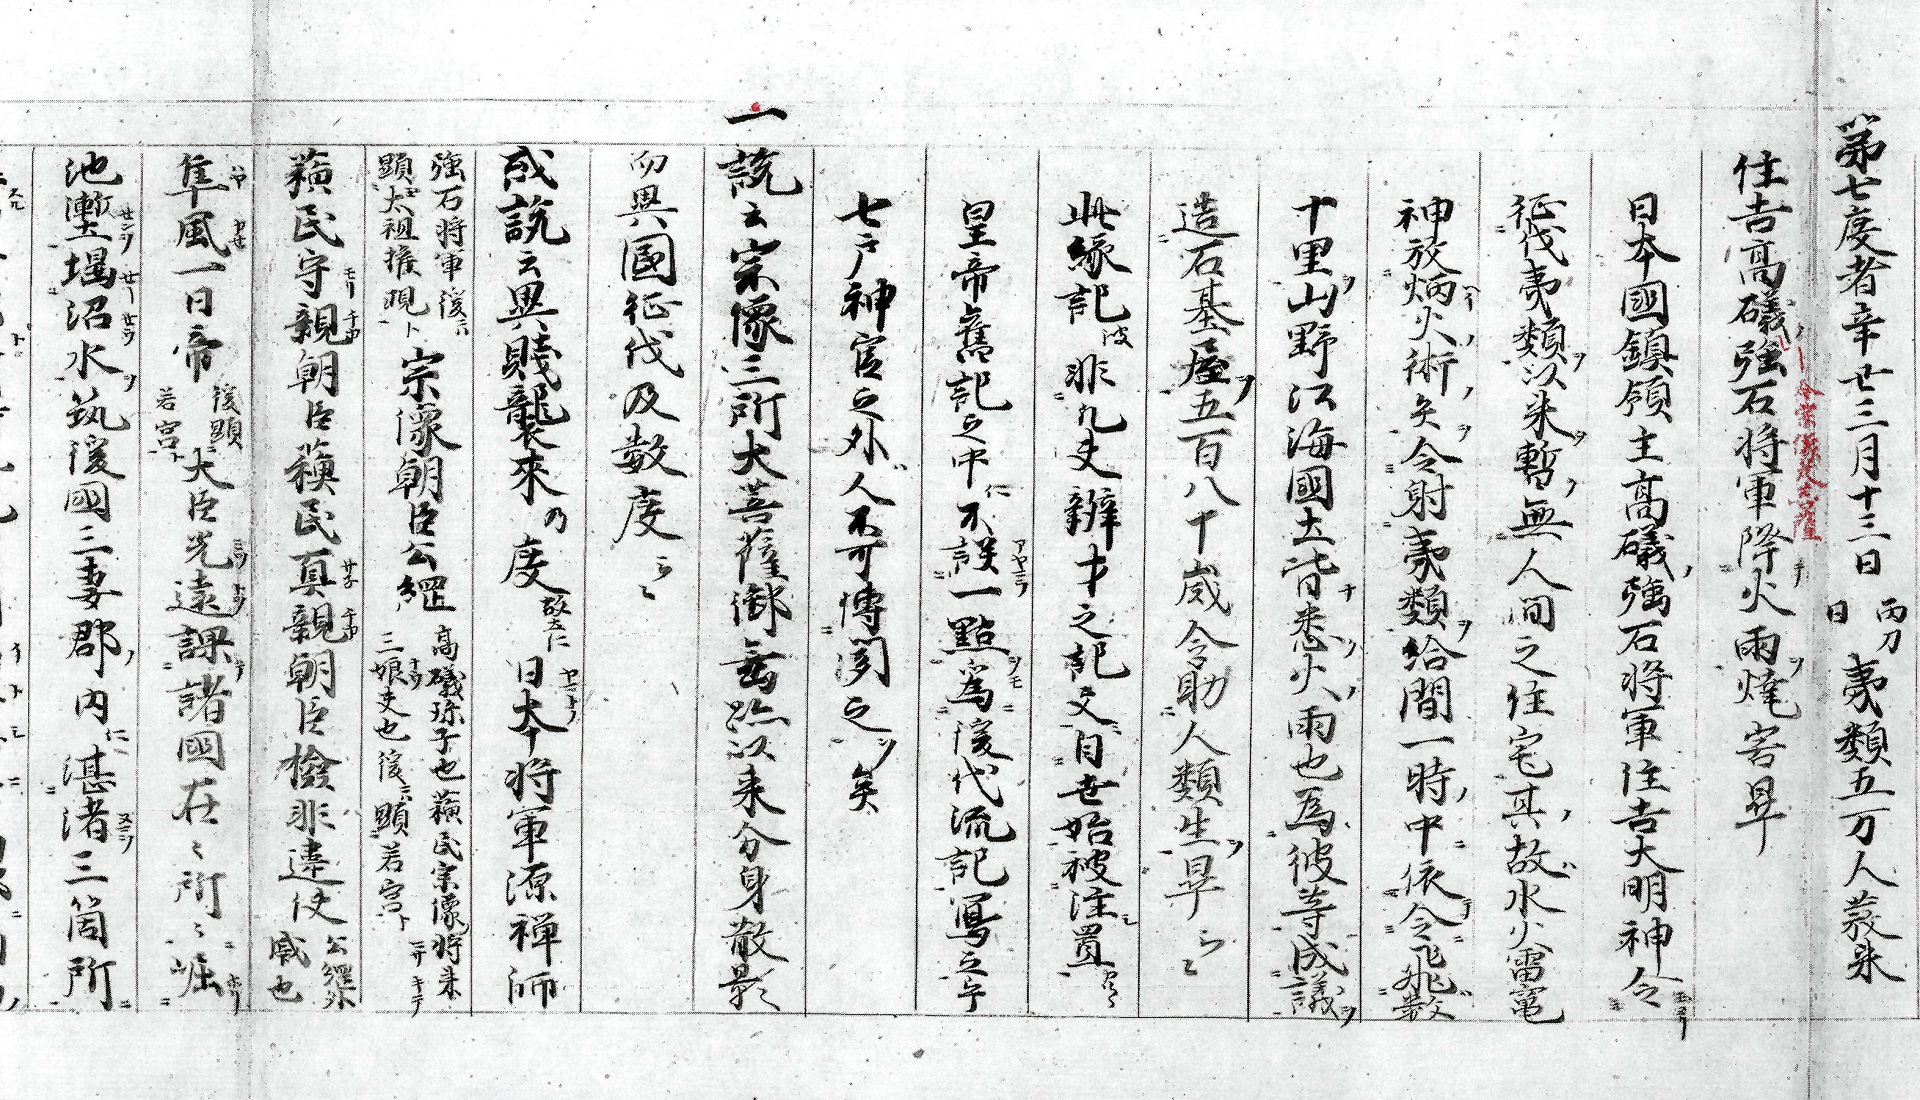 第七度者辛丗三月十三日丙刀日夷類五万人義来
住吉高礒強石将軍降火雨焼害畢
日本國鎮領主高礒強石将軍住吉大明神令
征伐夷類以来暫無人間之住宅其故水火雷電
神放炳火術矣令射夷類給間一時中依令飛数
十里山野江海國土皆悉火雨也為彼等成議
造石基屋五百八十歳令助人類生畢云々
此縁記者非凡夫辨才之記文自世始被注置
皇帝舊記之中仁不誤一點為後代流記寫之于
七戸神官之外人不可傳聞之矣
一説云宗像三所大菩薩御垂迹以来分身散影
而異國征伐及数度云々
或説云異賊襲來乃度故大仁日本将軍源禅師
強石将軍後ニ顕太祖権現ト宗像朝臣公綱高礒孫子也蘋民宗像将来三娘夫也後ニ顕若宮ト
蘋民守親朝臣蘋民真親朝臣撿非違使公綱外戚也
隼風一日帝後顕若宮ト大臣光遠課諸國在々所々堀
池壍堨沼水筑後國三妻郡内仁湛渚三箇所